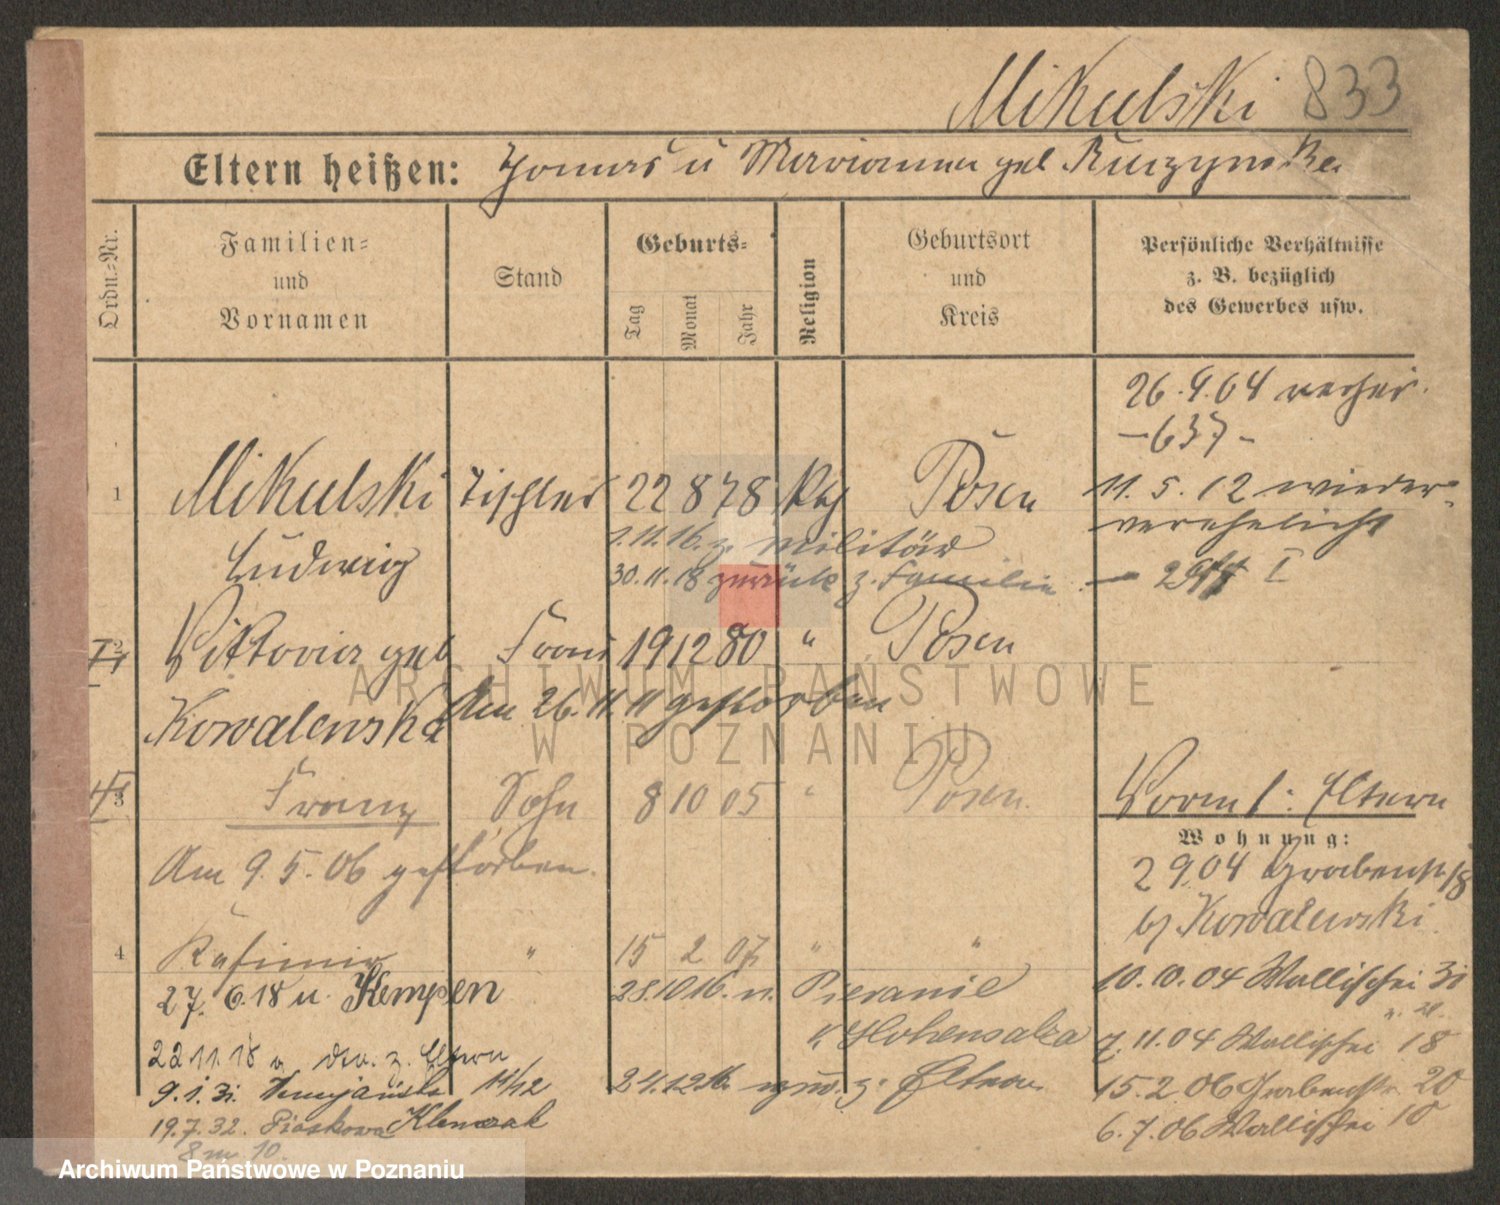 Mikulski 833
Eltern heißen: Thomas u Marianna geb Kuczynska
Ordn.-Nr.
Familien-
und
Vornamen
Stand
Geburts-
Tag
Monat
Jahr
Religion
Geburtsort
und
Kreis
Persönliche Verhältnisse
z. B. bezüglich
des Gewerbes usw.
26.9.04 verhei.
-637-
1 Mikulski Tischler 22 8 78 kth Posen
11. 5. 12 wieder-
verehelicht
Ludwig
1.11.16. z. Militär
30.11.18 zurück z. Familie
I
2 Viktoria geb Frau 19 12 80 " Posen
Kowalewska Am 26.11.11 gestorben
3 Franz Sohn 8 10 05 " Posen.
Am 9.5.06 gestorben.
Vorm I: Eltern
Wohnung:
2 9.04 Grabenstr 18
b/ Kowalewski
4 Kasimir " 15 2 07 " "
27. 6.18 u. Kempen
28.10.16. n. Pieranie
Hohensalza
22.11.18 v. z. Eltern
24.12.16. z. Eltern
9.1.31. 11/12
19.7.32. Piaskowa Klemczak
8 m. 10.
10.10.04 Wallischei 31
7.11.04 Wallischei 18
15.2.06 Grabenstr. 20
6.7.06 Wallischei 10
ARCHIWUM PAŃSTWOWE
W POZNANIU
Archiwum Państwowe w Poznaniu